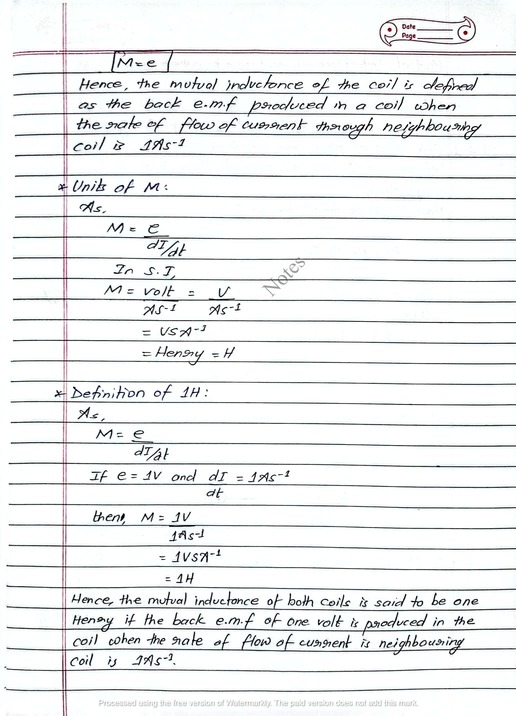 Date
Page
M=e
Hence, the mutual inductance of the coil is defined
as the back e.m.f produced in a coil when
the rate of flow of current through neighbouring
coil is 1As⁻¹
* Units of M:
As,
M = e
dI/dt
In S.I,
M = volt = V
As⁻¹ As⁻¹
= VSA⁻¹
= Henry = H
Notes
* Definition of 1H:
As,
M = e
dI/dt
If e = 1V and dI = 1As⁻¹
dt
then, M = 1V
1As⁻¹
= 1VSA⁻¹
= 1H
Hence, the mutual inductance of both coils is said to be one
Henry if the back e.m.f of one volt is produced in the
coil when the rate of flow of current is neighbouring
coil is 1As⁻¹.
Processed using the free version of Watermarkly. The paid version does not add this mark.